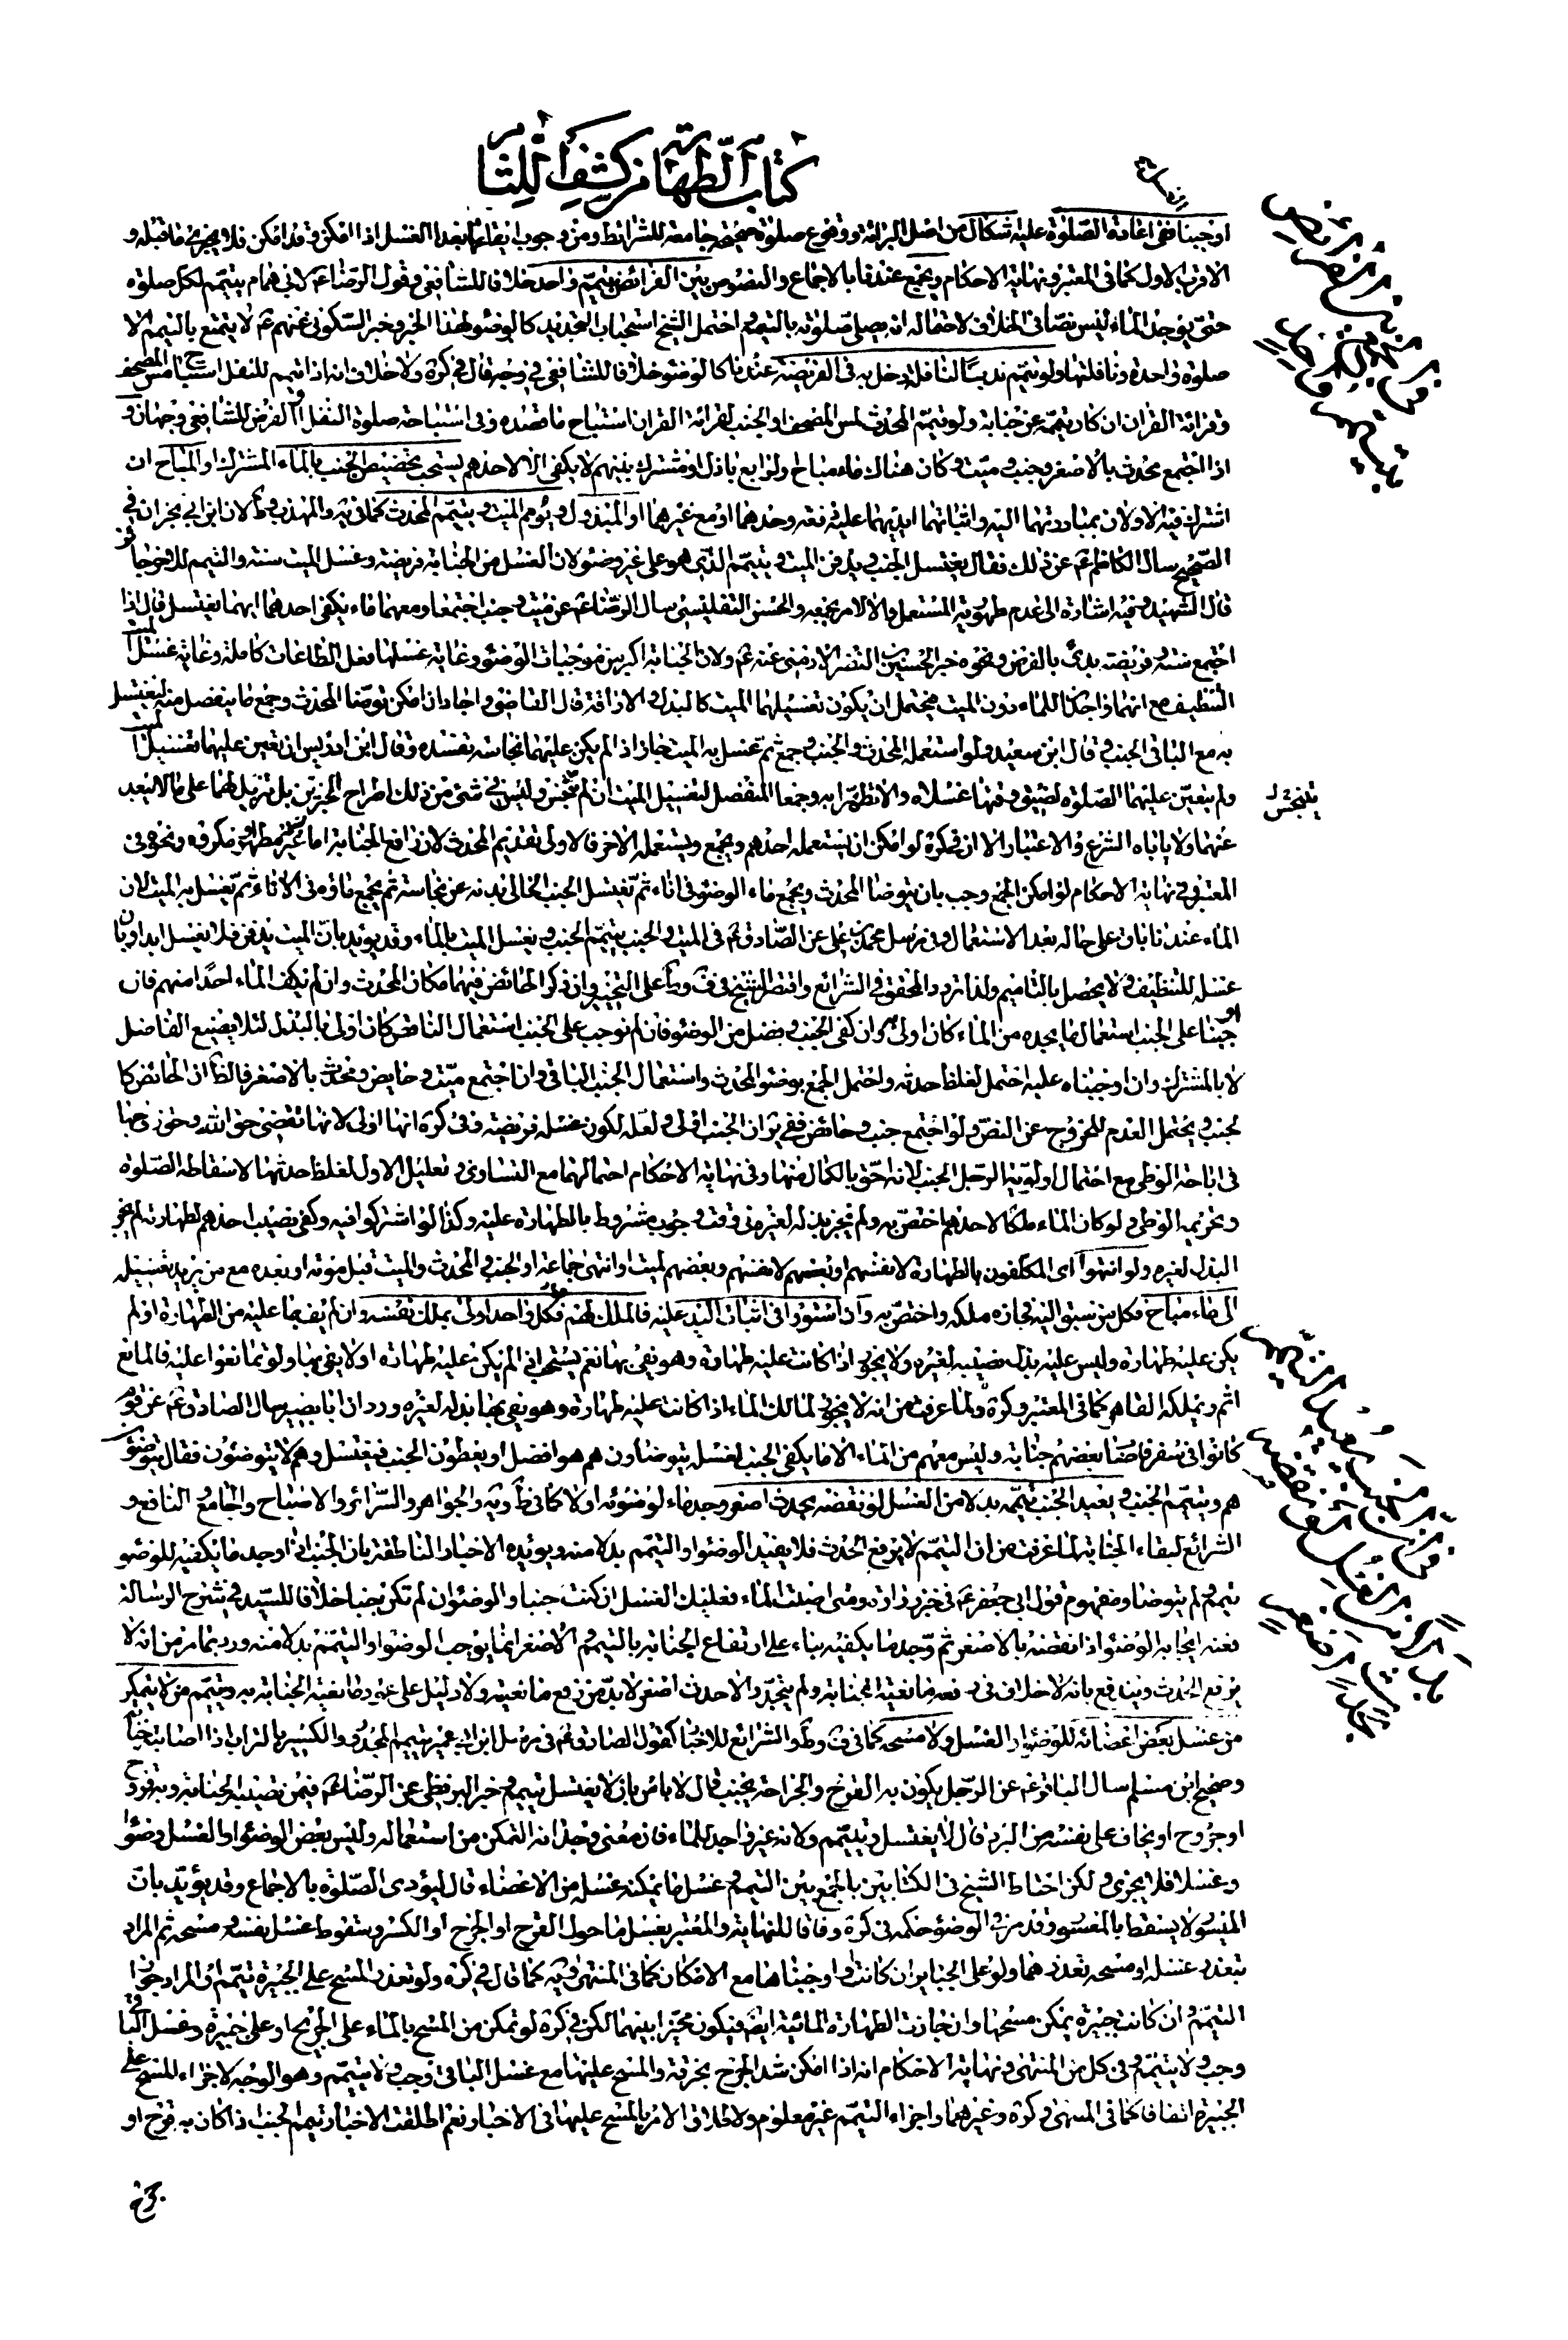 كتاب الطهارة من كشف اللثام
اوجبنا ففي اعادة الصلوة عليه اشكال من اصل البرائة ووقوع صلوة صحيحة جامعة للشرائط ومن وجوب ايقاعها بعد الغسل اذا امكن وقد امكن فلا يجزي ما قبله و
الاقرب الاول كما في المعتبر ونهاية الاحكام ويجمع عندنا بالاجماع والنصوص بين الفرائض بتيمم واحد خلافا للشافعي وقول الرضا ع لابي همام يتيمم لكل صلوة
حتى يوجد الماء ليس نصا في الخلاف لاحتماله انه يصلي صلوته بالتيمم واحتمل الشيخ استحباب التجديد كالوضوء لهذا الخبر وخبر السكوني عنهم ع لا يتمتع بالتيمم الا
صلوة واحدة ونافلتها ولو تيمم ندبا لنافلة دخل به في الفريضة عندنا كالوضوء خلافا للشافعي في وجه قال في كرة ولا خلاف انه اذا تيمم للنفل استباح مس المصحف
وقرائة القران ان كان تيممه عن جنابة ولو تيمم المحدث لمس المصحف او الجنب لقرائة القران استباح ما قصده وفي استباحة صلوة النفل او الفرض للشافعي وجهان و
اذا اجتمع محدث بالاصغر وجنب وميت وكان هناك ماء مباح ولرابع باذل او مشترك بينهم لا يكفي الا لاحدهم يستحب تخصيص الجنب بالماء المشترك او المباح ان
اشترك فيه الاولان بمبادرتهما اليه واثباتهما ايديهما عليه دفعه وحدهما او مع غيرهما او المبذول ويؤمم الميت ويتيمم المحدث كما في يه والمهذب وط لان ابن ابي نجران في
الصحيح سال الكاظم ع عن ذلك فقال يغتسل الجنب ويدفن الميت ويتيمم الذي هو على غير وضوء لان الغسل من الجنابة فريضة وغسل الميت سنة والتيمم للاخر جائز
قال الشهيد وفيه اشارة الى عدم طهورية المستعمل والا لامر بجمعه والحسن التفليسي سال الرضا ع عن ميت وجنب اجتمعا ومعهما ماء يكفي احدهما ايهما يغتسل قال اذا
اجتمع سنة وفريضة بدئ بالفرض ونحوه خبر الحسين بن النضر الارمني عنه ع ولان الجنابة اكبر من موجبات الوضوء وغاية غسلها فعل الطاعات كاملة وغاية غسل الميت
التنظيف مع انهما واجدان للماء دون الميت ويحتمل ان يكون تغسيلهما الميت كالبدل والاراقة قال القاضي واجاد ان امكن توضأ المحدث وجمع ما ينفصل منه ليغتسل
به مع الباقي الجنب وقال ابن سعيد ولو استعمله المحدث والجنب وجمع ثم غسل به الميت جاز اذا لم يكن عليهما نجاسة تفسده وقال ابن ادريس ان تعين عليهما تغسيل الميت
ولم يتعين عليهما الصلوة لضيق وقتها غسلاه والا تطهرا به وجمعا المنفصل لتغسيل الميت ان لم يتنجس وليس في شيء من ذلك اطراح الخبرين بل تنزيل لهما على ما لا يبعد
يتنجس
عنهما ولا ياباه الشرع والاعتبار الا ان في كرة لو امكن ان يستعمله احدهم ويجمع ويستعمله الاخر فالاولى تقديم المحدث لان رافع الجنابة اما غير مطهر او مكروه ونحوه في
المعتبر وفي نهاية الاحكام لو امكن الجمع وجب بان يتوضا المحدث ويجمع ماء الوضوء في اناء ثم يغتسل الجنب الخالي بدنه عن نجاسة ثم يجمع ماؤه في الاناء ثم يغسل به الميت لان
الماء عندنا باق على حاله بعد الاستعمال وفي مرسل محمد بن علي عن الصادق ع في الميت والجنب يتيمم الجنب ويغسل الميت بالماء وقد يؤيد بان الميت يدفن فلا يغسل ابدا وبان
غسله للتنظيف ولا يحصل بالتأميم ولذا تردد المحقق في الشرائع واقتصر الشيخ في ف وط على التخيير وان ذكر الحائض فيهما مكان المحدث وان لم يكف الماء احدا منهم فان
اوجبنا على الجنب استعمال ما يجده من الماء كان اولى وان كفى الجنب وفضل من الوضوء فان لم نوجب على الجنب استعمال الناقص كان اولى بالبذل لئلا يضيع الفاضل
لا بالمشترك وان اوجبناه عليه احتمل لغلظ حدثه واحتمل الجمع بوضوء المحدث واستعمال الجنب الباقي وان اجتمع ميت وحايض ومحدث بالاصغر فالظ ان الحائض كا
لجنب ويحتمل العدم للخروج عن النص ولو اجتمع جنب وحائض ففي ير ان الجنب اولى ولعله لكون غسله فريضة وفي كرة انها اولى لانها تقضي حق الله وحق زوجها
في اباحة الوطي مع احتمال اولوية الرجل الجنب لانه احق بالكمال منها وفي نهاية الاحكام احتمالهما مع التساوي وتعليل الاول لغلظ حدثها لاسقاطه الصلوة
وتحريمه الوطي ولو كان الماء ملكا لاحدهم اختص به ولم يجز بذله لغيره في وقت وجوب مشروط بالطهارة عليه وكذا لو اشتركوا فيه وكفى نصيب احدهم لطهارته لم يجز
البذل لغيره ولو انتهوا اي المكلفون بالطهارة لانفسهم او بعضهم لانفسهم وبعضهم لميت او انتهى جماعة او الجنب والمحدث والميت قبل موته او بعده مع من يريد تغسيله
الى ماء مباح فكل من سبق اليه فحازه ملكه واختص به وان استووا في اثبات اليد عليه فالملك لهم فكل واحد اولى بملك نفسه وان لم يف بما عليه من الطهارة او لم
يكن عليه طهارة وليس عليه بذله نصيبه لغيره ولا يجوز اذا كانت عليه طهارة وهو يفي بها نعم يستحب ان لم يكن عليه طهارة او لا يفي بها ولو تمانعوا عليه فالمانع
اثم ويملكه القاهر كما في المعتبر وكرة ولما عرفت من انه لا يجوز لمالك الماء اذا كانت عليه طهارة وهو يفي بها بذله لغيره ورد ان ابا بصير سال الصادق ع عن قوم
كانوا في سفر فاصاب بعضهم جنابة وليس معهم من الماء الا ما يكفي الجنب لغسله يتوضأون هم هو افضل او يعطون الجنب فيغتسل وهم لا يتوضئون فقال يتوضؤ
هم ويتيمم الجنب ويعيد الجنب تيممه بدلا من الغسل لو نقضه بحدث اصغر وجد ماء لوضوئه او لا كما في ط ويه والجواهر والسرائر والاصباح والجامع النافع و
الشرائع لبقاء الجنابة لما عرفت من ان التيمم لا يرفع الحدث فلا يفيد الوضوء او التيمم بدلا منه ويؤيده الاخبار الناطقة بان الجنب ان وجد ما يكفيه للوضوء
تيمم ولم يتوضا ومفهوم قول ابي جعفر ع في خبر زرارة ومتى اصبت الماء فعليك الغسل ان كنت جنبا والوضوء ان لم تكن جنبا خلافا للسيد في شرح الرسالة
فعنه ايجابه الوضوء اذا نقضه بالاصغر ثم وجد ما يكفيه بناء على ارتفاع الجنابة بالتيمم والاصغر انما يوجب الوضوء او التيمم بدلا منه ورد بما مر من انه لا
يرفع الحدث ويدافع بانه لا خلاف في رفعه مانعية الجنابة ولم يتجدد الا حدث اصغر لا بد من رفع مانعيته ولا دليل على عود مانعية الجنابة به ويتيمم من لا يتمكن
من غسل بعض اعضائه للوضوء او الغسل ولا مسحه كما في ف وط والشرائع للاخبار كقول الصادق ع في مرسل ابن ابي عمير يتيمم المجدور والكسير بالتراب اذا اصابته جنابة
وصحيح ابن مسلم سال الباقر ع عن الرجل يكون به القرح والجراحة يجنب قال لا باس بان لا يغتسل يتيمم وخبر البزنطي عن الرضا ع فيمن تصيبه الجنابة وبه قروح
او جروح او يخاف على نفسه من البرد قال لا يغتسل ويتيمم ولانه غير واجد للماء فان معنى وجدانه التمكن من استعماله وليس بعض الوضوء او الغسل وضوءا
وغسلا فلا يجزي ولكن احتاط الشيخ في الكتابين بالجمع بين التيمم وغسل ما يمكنه غسله من الاعضاء قال ليؤدي الصلوة بالاجماع وقد يؤيد بان
الميسور لا يسقط بالمعسور وقد مر في الوضوء حكمه في كرة وفاقا للنهاية والمعتبر بغسل ما حول القرح او الجرح او الكسر وسقوط غسل نفسه ومسحه ثم المراد
بتعذر غسله او مسحه تعذرهما ولو على الجبائر ان كانت واوجبناها مع الامكان كما في المنتهى وفيه كما قال في كرة ولو تعذر المسح على الجبيرة تيمم او المراد جواز
التيمم وان كانت جبيرة يمكن مسحها وان جازت الطهارة المائية ايضا فيكون مخيرا بينهما لكن في كرة لو تمكن من المسح بالماء على الجرح او على جبيرة وغسل الباقي
وجب ولا يتيمم وفي كل من المنتهى ونهاية الاحكام انه اذا امكن شد الجرح بخرقة والمسح عليها مع غسل الباقي وجب ولا يتيمم وهو الوجه لاجزاء المسح على
الجبيرة اتفاقا كما في المنتهى وكرة وغيرهما واجزاء التيمم غير معلوم ولاطلاق الامر بالمسح عليها في الاخبار نعم اطلقت الاخبار تيمم الجنب اذا كان به قرح او